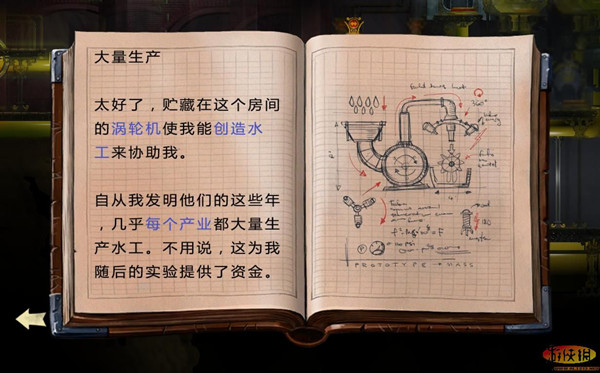 大量生产
太好了，贮藏在这个房间
的涡轮机使我能创造水
工来协助我。
自从我发明他们的这些年
，几乎每个产业都大量生
产水工。不用说，这为我
随后的实验提供了资金。
PROTOTYPE → MASS
游侠网